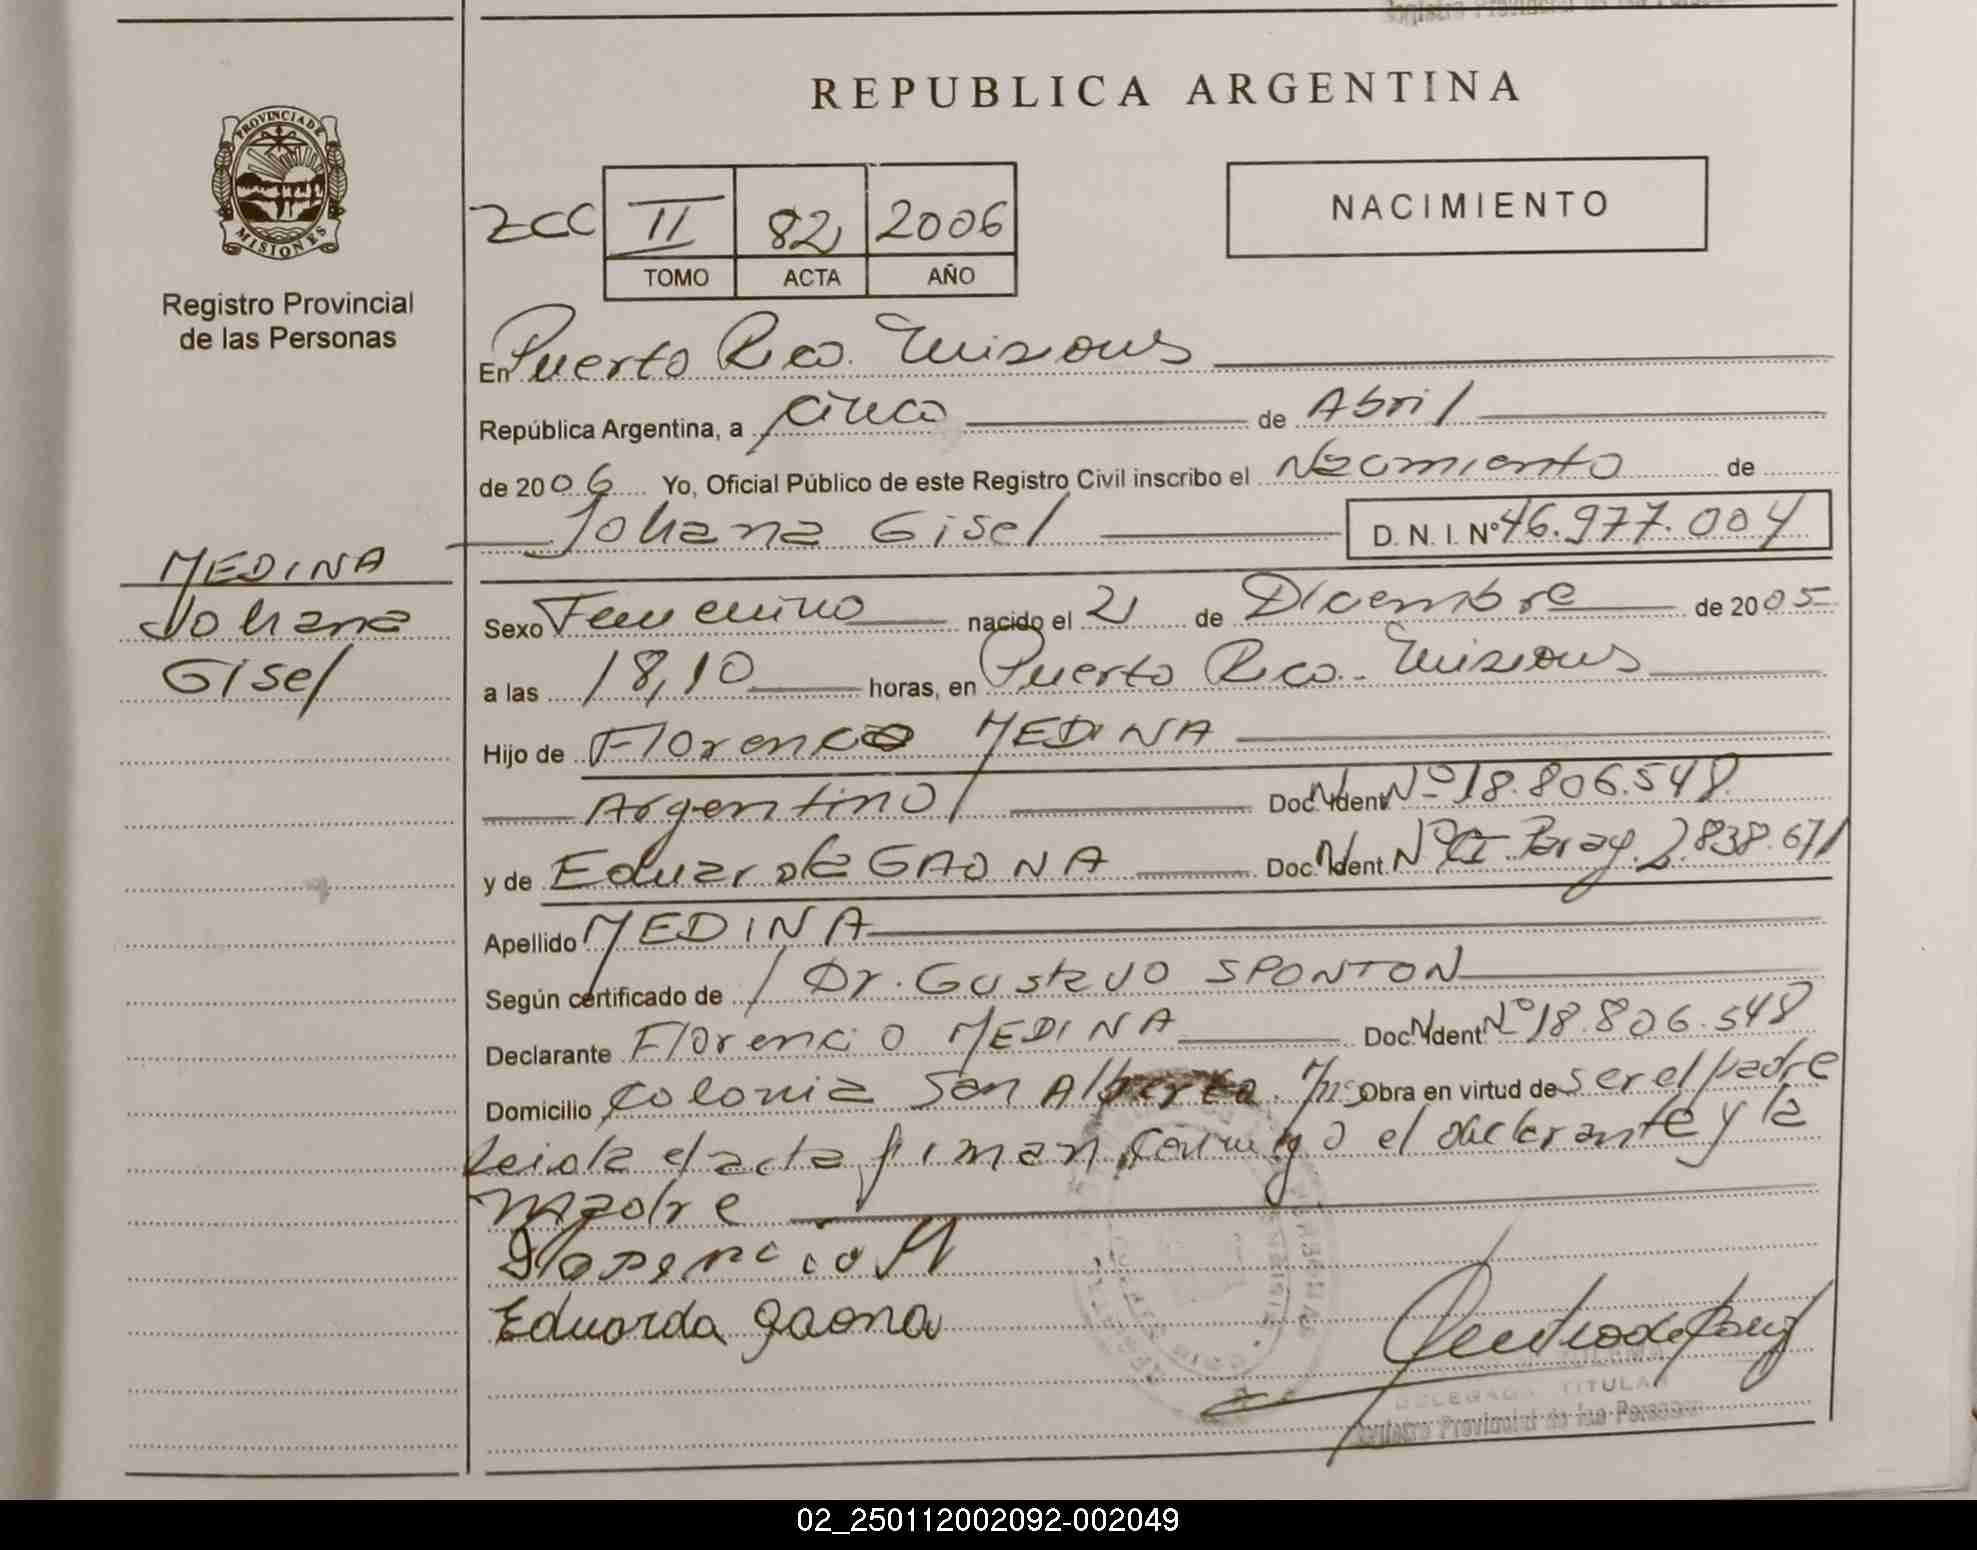 REPUBLICA ARGENTINA
PROVINCIA DE
MISIONES
Registro Provincial
de las Personas
ZCC II 82 2006
TOMO ACTA AÑO
NACIMIENTO
En Puerto Rico. Misiones
República Argentina, a cinco de Abril
de 2006 Yo, Oficial Público de este Registro Civil inscribo el Nacimiento de
Johana Gisel D. N. I. Nº 46.977.004
MEDINA
Johana
Gisel
Sexo Femenino nacido el 21 de Diciembre de 2005
a las 18,10 horas, en Puerto Rico. Misiones
Hijo de Florencio MEDINA
Argentino Doc. Ident Nº 18.806.548
y de Eduarda GAONA Doc. Ident. Nº CI Parag. 2.838.671
Apellido MEDINA
Según certificado de Dr. Gustavo SPONTON
Declarante Florencio MEDINA Doc. Ident Nº 18.806.548
Domicilio Colonia San Alberto. Mis Obra en virtud de ser el padre
Leida el acta firman conmigo el declarante y la
madre
Florencio M
Eduarda gaona
DELEGADA TITULAR
Registro Provincial de las Personas
02_250112002092-002049